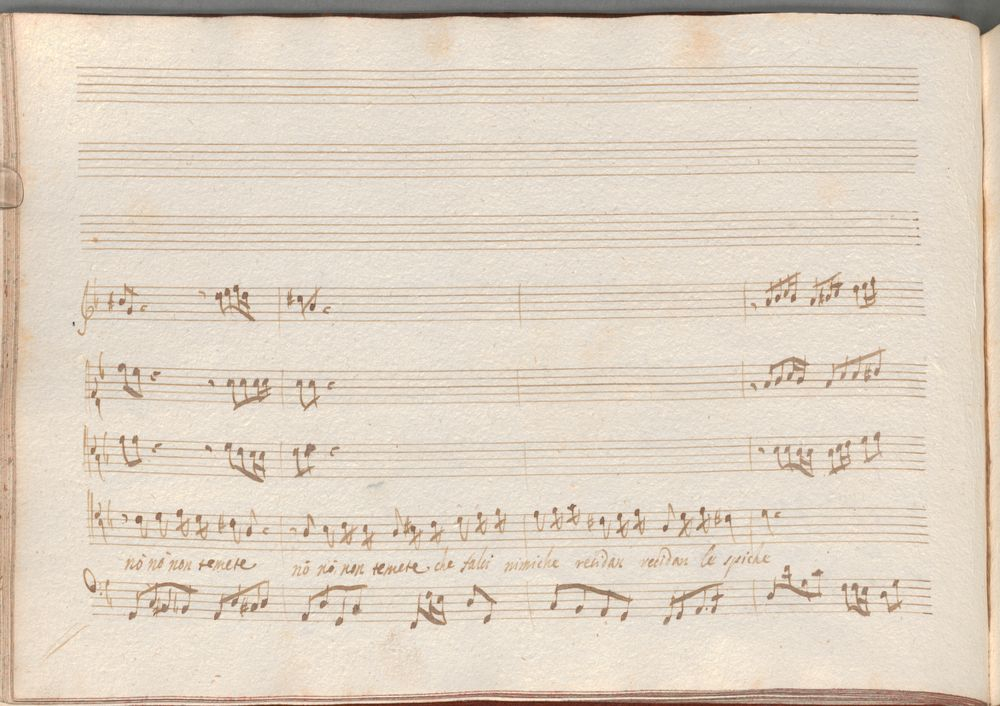 nò nò non temete nò nò non temete che falci nimiche recidan recidan le spiche